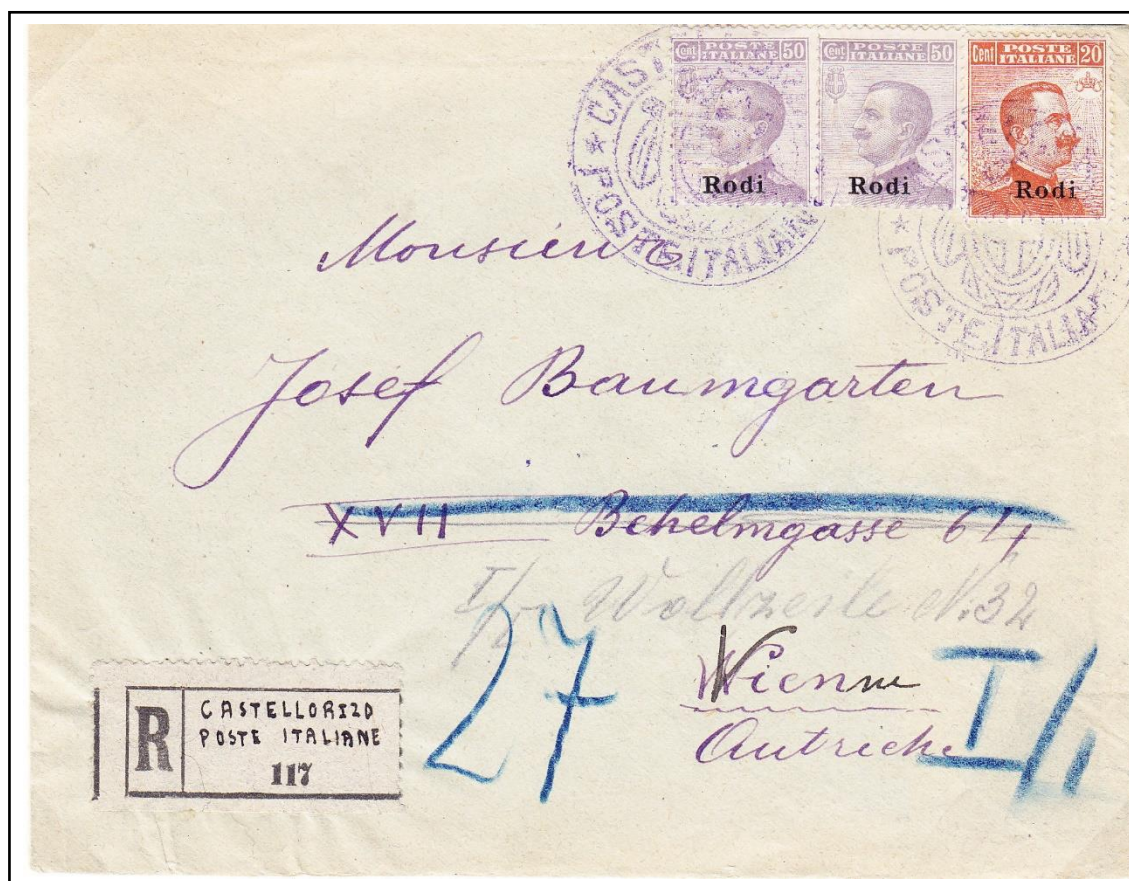 Cent POSTE ITALIANE 50
Rodi
Cent POSTE ITALIANE 50
Rodi
Cent POSTE ITALIANE 20
Rodi
* CAST
POSTE ITALIAN
* POSTE ITALIA
Monsieur
Josef Baumgarten
XVII Behelmgasse 6/4
I/1 Wollzeile N. 32
27
Wien
Autriche
I/1
R
CASTELLORIZO
POSTE ITALIANE
117